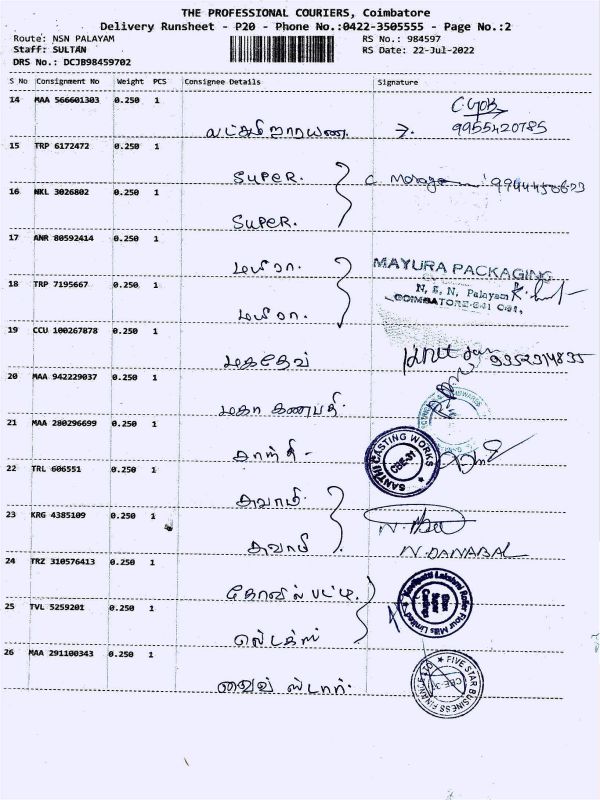 THE PROFESSIONAL COURIERS, Coimbatore
Delivery Runsheet - P20 - Phone No.:0422-3505555 - Page No.:2
Route: NSN PALAYAM RS No.: 984597
Staff: SULTAN RS Date: 22-Jul-2022
DRS No.: DCJB98459702
S No Consignment No Weight PCS Consignee Details Signature
14 MAA 566601303 0.250 1
9955420785
15 TRP 6172472 0.250 1
SUPER.
16 NKL 3026802 0.250 1
SUPER.
17 ANR 80592414 0.250 1
மயிரா. MAYURA PACKAGING
N. S. N. Palayam
18 TRP 7195667 0.250 1
COIMBATORE-641
மயிரா.
19 CCU 100267878 0.250 1
மகாதேவ் 9952314835
20 MAA 942229037 0.250 1
மகா கணபதி.
21 MAA 280296699 0.250 1
சாந்தி - SANTHI CASTING WORKS CBE-31
22 TRL 606551 0.250 1
சுவாமி.
23 KRG 4385109 0.250 1
சுவாமி N. DANABAL
24 TRZ 310576413 0.250 1
கோவில்பட்டி. Lakshmi Roller Flour Mills Limited
25 TVL 5259201 0.250 1
26 MAA 291100343 0.250 1
பைவ் ஸ்டார். FIVE STAR BUSINESS FINANCE LTD